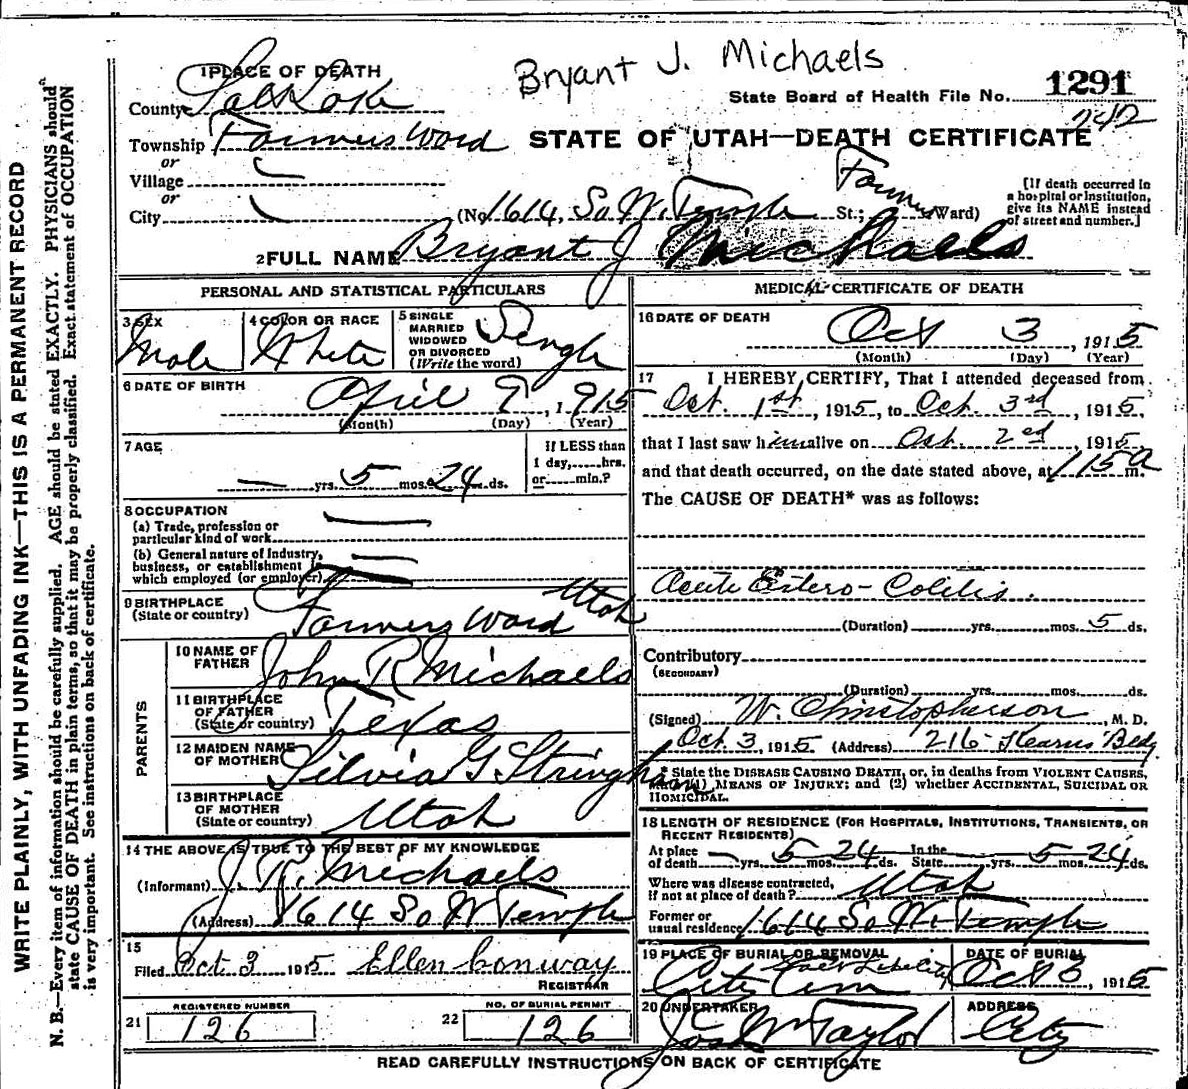 Bryant J. Michaels
1 PLACE OF DEATH
County Salt Lake
State Board of Health File No. 1291
242
Township Farmers Ward
STATE OF UTAH—DEATH CERTIFICATE
or
Village
or
City
(No 1614 So W. Temple St.; Farmers Ward)
[If death occurred in a hospital or institution, give its NAME instead of street and number.]
2 FULL NAME Bryant J Michaels
PERSONAL AND STATISTICAL PARTICULARS
3 SEX
Male
4 COLOR OR RACE
White
5 SINGLE MARRIED WIDOWED OR DIVORCED (Write the word)
Single
6 DATE OF BIRTH
April 9, 1915
(Month) (Day) (Year)
7 AGE
— yrs. 5 mos. 24 ds.
If LESS than 1 day,......hrs. or......min.?
8 OCCUPATION
(a) Trade, profession or particular kind of work
(b) General nature of Industry, business, or establishment in which employed (or employer)
9 BIRTHPLACE
(State or country) Farmers Ward Utah
PARENTS
10 NAME OF FATHER John R Michaels
11 BIRTHPLACE OF FATHER (State or country) Texas
12 MAIDEN NAME OF MOTHER Silvia G. Stringham
13 BIRTHPLACE OF MOTHER (State or country) Utah
14 THE ABOVE IS TRUE TO THE BEST OF MY KNOWLEDGE
(Informant) J. R. Michaels
(Address) 1614 So W Temple
15
Filed Oct 3 1915 Ellen Conway
REGISTRAR
REGISTERED NUMBER
21 126
NO. OF BURIAL PERMIT
22 126
MEDICAL CERTIFICATE OF DEATH
16 DATE OF DEATH
Oct 3, 1915
(Month) (Day) (Year)
17 I HEREBY CERTIFY, That I attended deceased from
Oct. 1st, 1915, to Oct. 3rd, 1915,
that I last saw him alive on Oct. 2ed, 1915,
and that death occurred, on the date stated above, at 115a m.
The CAUSE OF DEATH* was as follows:
Acute Entero-Colitis.
(Duration) yrs. mos. 5 ds.
Contributory
(SECONDARY)
(Duration) yrs. mos. ds.
(Signed) W. Christopherson, M. D.
Oct. 3, 1915 (Address) 216 Kearns Bldg
* State the DISEASE CAUSING DEATH, or, in deaths from VIOLENT CAUSES,
state (1) MEANS OF INJURY; and (2) whether ACCIDENTAL, SUICIDAL OR
HOMICIDAL.
18 LENGTH OF RESIDENCE (FOR HOSPITALS, INSTITUTIONS, TRANSIENTS, OR RECENT RESIDENTS)
At place of death — yrs. 5 mos. 24 ds. In the State — yrs. 5 mos. 24 ds.
Where was disease contracted, if not at place of death? Utah
Former or usual residence 1614 So W. Temple
19 PLACE OF BURIAL OR REMOVAL
City Cem
DATE OF BURIAL
Oct 3, 1915
20 UNDERTAKER
Jos Wm Taylor
ADDRESS
City
READ CAREFULLY INSTRUCTIONS ON BACK OF CERTIFICATE
WRITE PLAINLY, WITH UNFADING INK—THIS IS A PERMANENT RECORD
N. B.—Every item of information should be carefully supplied. AGE should be stated EXACTLY. PHYSICIANS should
state CAUSE OF DEATH in plain terms, so that it may be properly classified. Exact statement of OCCUPATION
is very important. See instructions on back of certificate.